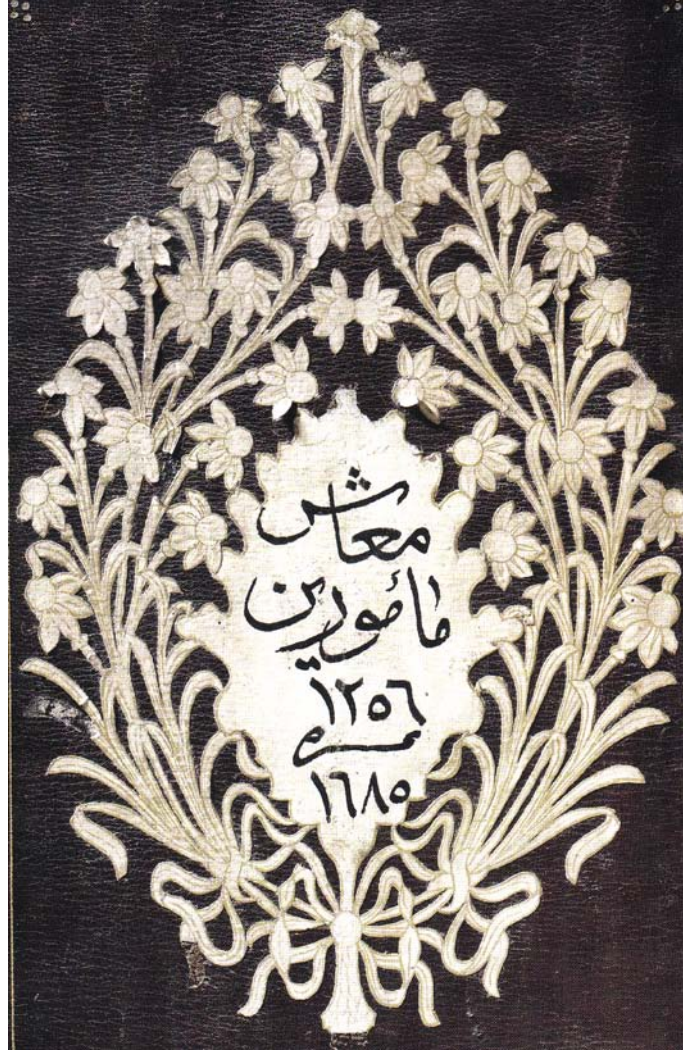 معاش
مأمورين
١٢٥٦
نمره
١٦٨٥